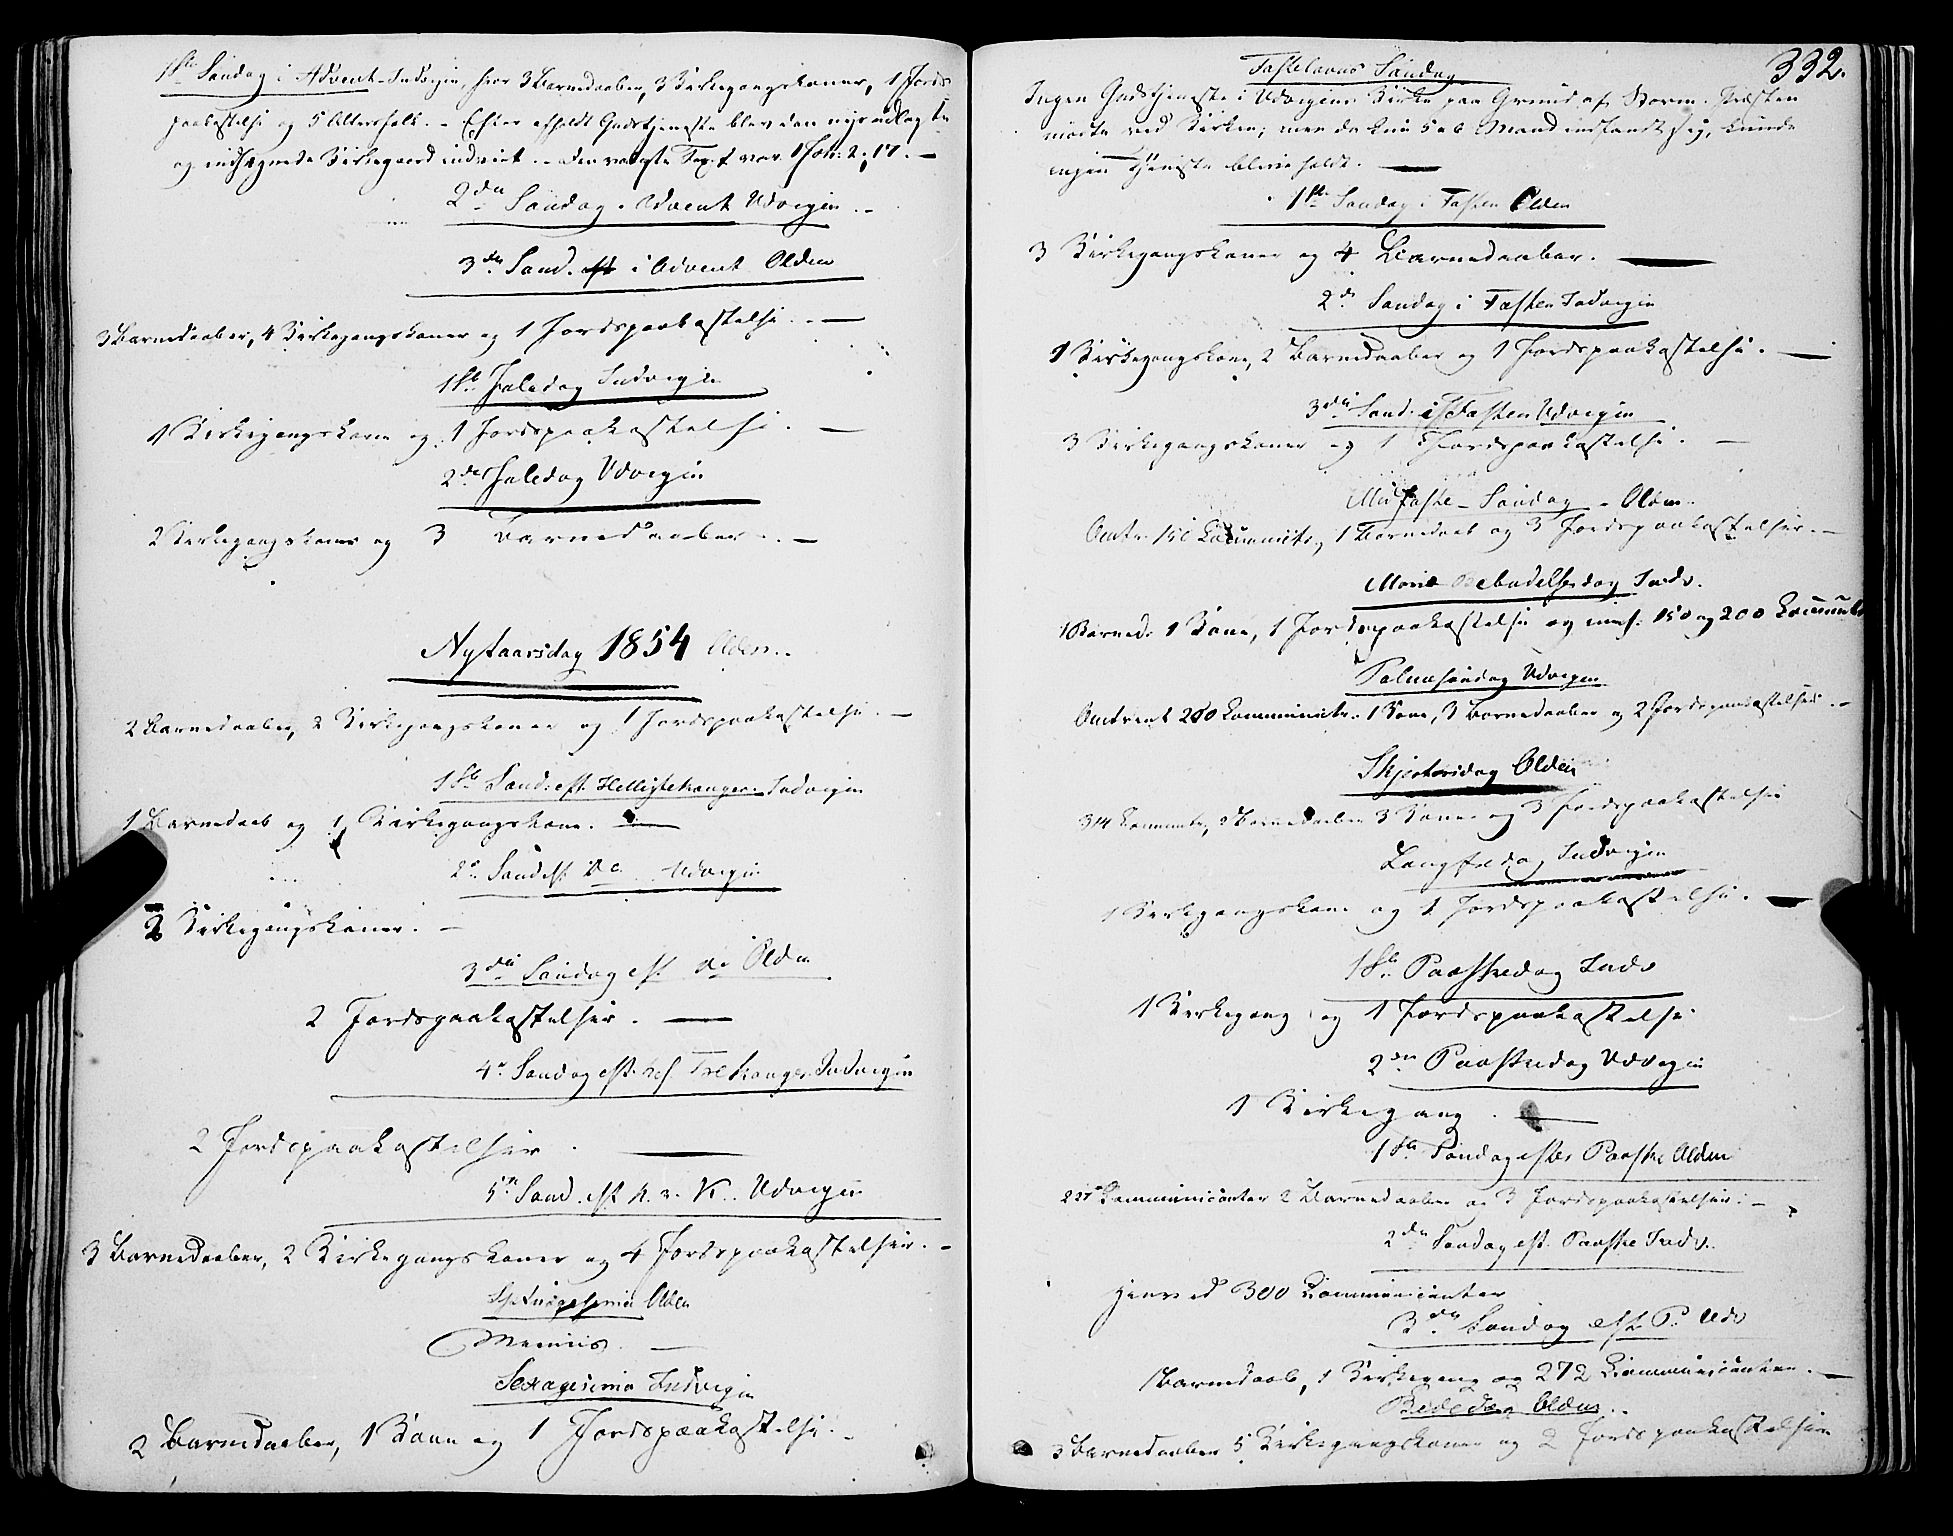 1ste Søndag i Advent Indvigen, hvor 3 Barnedaaber, 3 Kirkegangskoner, 1 Jords
paakastelse og 5 Altersfolk. - Efter afholdt Gudstjeneste blev den nys udlagte
og indhegnede Kirkegaard indviet. - Den valgte Text var 1 Joh: 2, 17. -
2den Søndag i Advent Udvigen. -
3die Sønd. i Advent Olden
3 Barnedaaber, 4 Kirkegangskoner og 1 Jordspaakastelse. -
1ste Juledag Indvigen
1 Kirkegangskone og 1 Jordspaakastelse. -
2den Juledag Udvigen
2 Kirkegangskoner og 3 Barnedaaber. -
Nytaarsdag 1854 Olden.
2 Barnedaaber, 2 Kirkegangskoner og 1 Jordspaakastelse. -
1ste Sønd: eft. Helligtrekonger. Indvigen
1 Barnedaab og 1 Kirkegangskone. -
2d Sønd eft. Do Udvigen
2 Kirkegangskoner. -
3die Søndag eft. do Olden
2 Jordspaakastelser. -
4de Søndag eft. hel Trekonger Indvigen
2 Jordspaakastelser. -
5te Sønd. eft. h. 3. K. Udvigen
3 Barnedaaber, 2 Kirkegangskoner og 4 Jordspaakastelser. -
Septuagesima Olden
Sexagesima Indvigen
2 Barnedaaber, 1 Kone og 1 Jordspaakastelse. -
332.
Fastelavns Søndag
Ingen Gudstjeneste i Udvigens Kirke paa Grund af Storm. Præsten
mødte ved Kirken; men da kun 5 a 6 Mand indfandt sig, kunde
ingen Tjeneste blive holdt. -
1ste Søndag i Fasten Olden
3 Kirkegangskoner og 4 Barnedaaber. -
2d Søndag i Fasten Indvigen
1 Kirkegangskone, 2 Barnedaaber og 1 Jordspaakastelse. -
3die Sønd. i Fasten Udvigen
3 Kirkegangskoner og 1 Jordspaakastelse. -
Midfaste-Søndag - Olden
Omtr. 150 Communite, 1 Barnedaab og 3 Jordspaakastelser. -
Mariæ Bebudelsesdag Indv.
1 Barned. 1 Kone, 1 Jordspaakastelse og 150 og 200 Communite
Palmesøndag Udvigen
Omtrent 200 Kommunicter. 1 Kone, 3 Barnedaaber og 2 Jordspaakastelser. -
Skjertorsdag Olden
314 Communte, 2 Barnedaaber 3 Koner og 3 Jordspaakastelser
Langfredag Indvigen
1 Kirkegangskone og 1 Jordspaakastelse. -
1ste Paaskedag Indv
1 Kirkegang og 1 Jordspaakastelse
2den Paaskedag Udvigen
1 Kirkegang. -
1ste Søndag efter Paaske Olden
Communicanter 2 Barnedaaber og 3 Jordspaakastelser. -
2den Søndag eft. Paaske Indv.
henved 300 Communicanter
3die Søndag eft. P. Udv
1 Barnedaab, 1 Kirkegang og 272 Communicanter. -
Bededag Olden.
3 Barnedaaber 5 Kirkegangskoner og 2 Jordspaakastelser